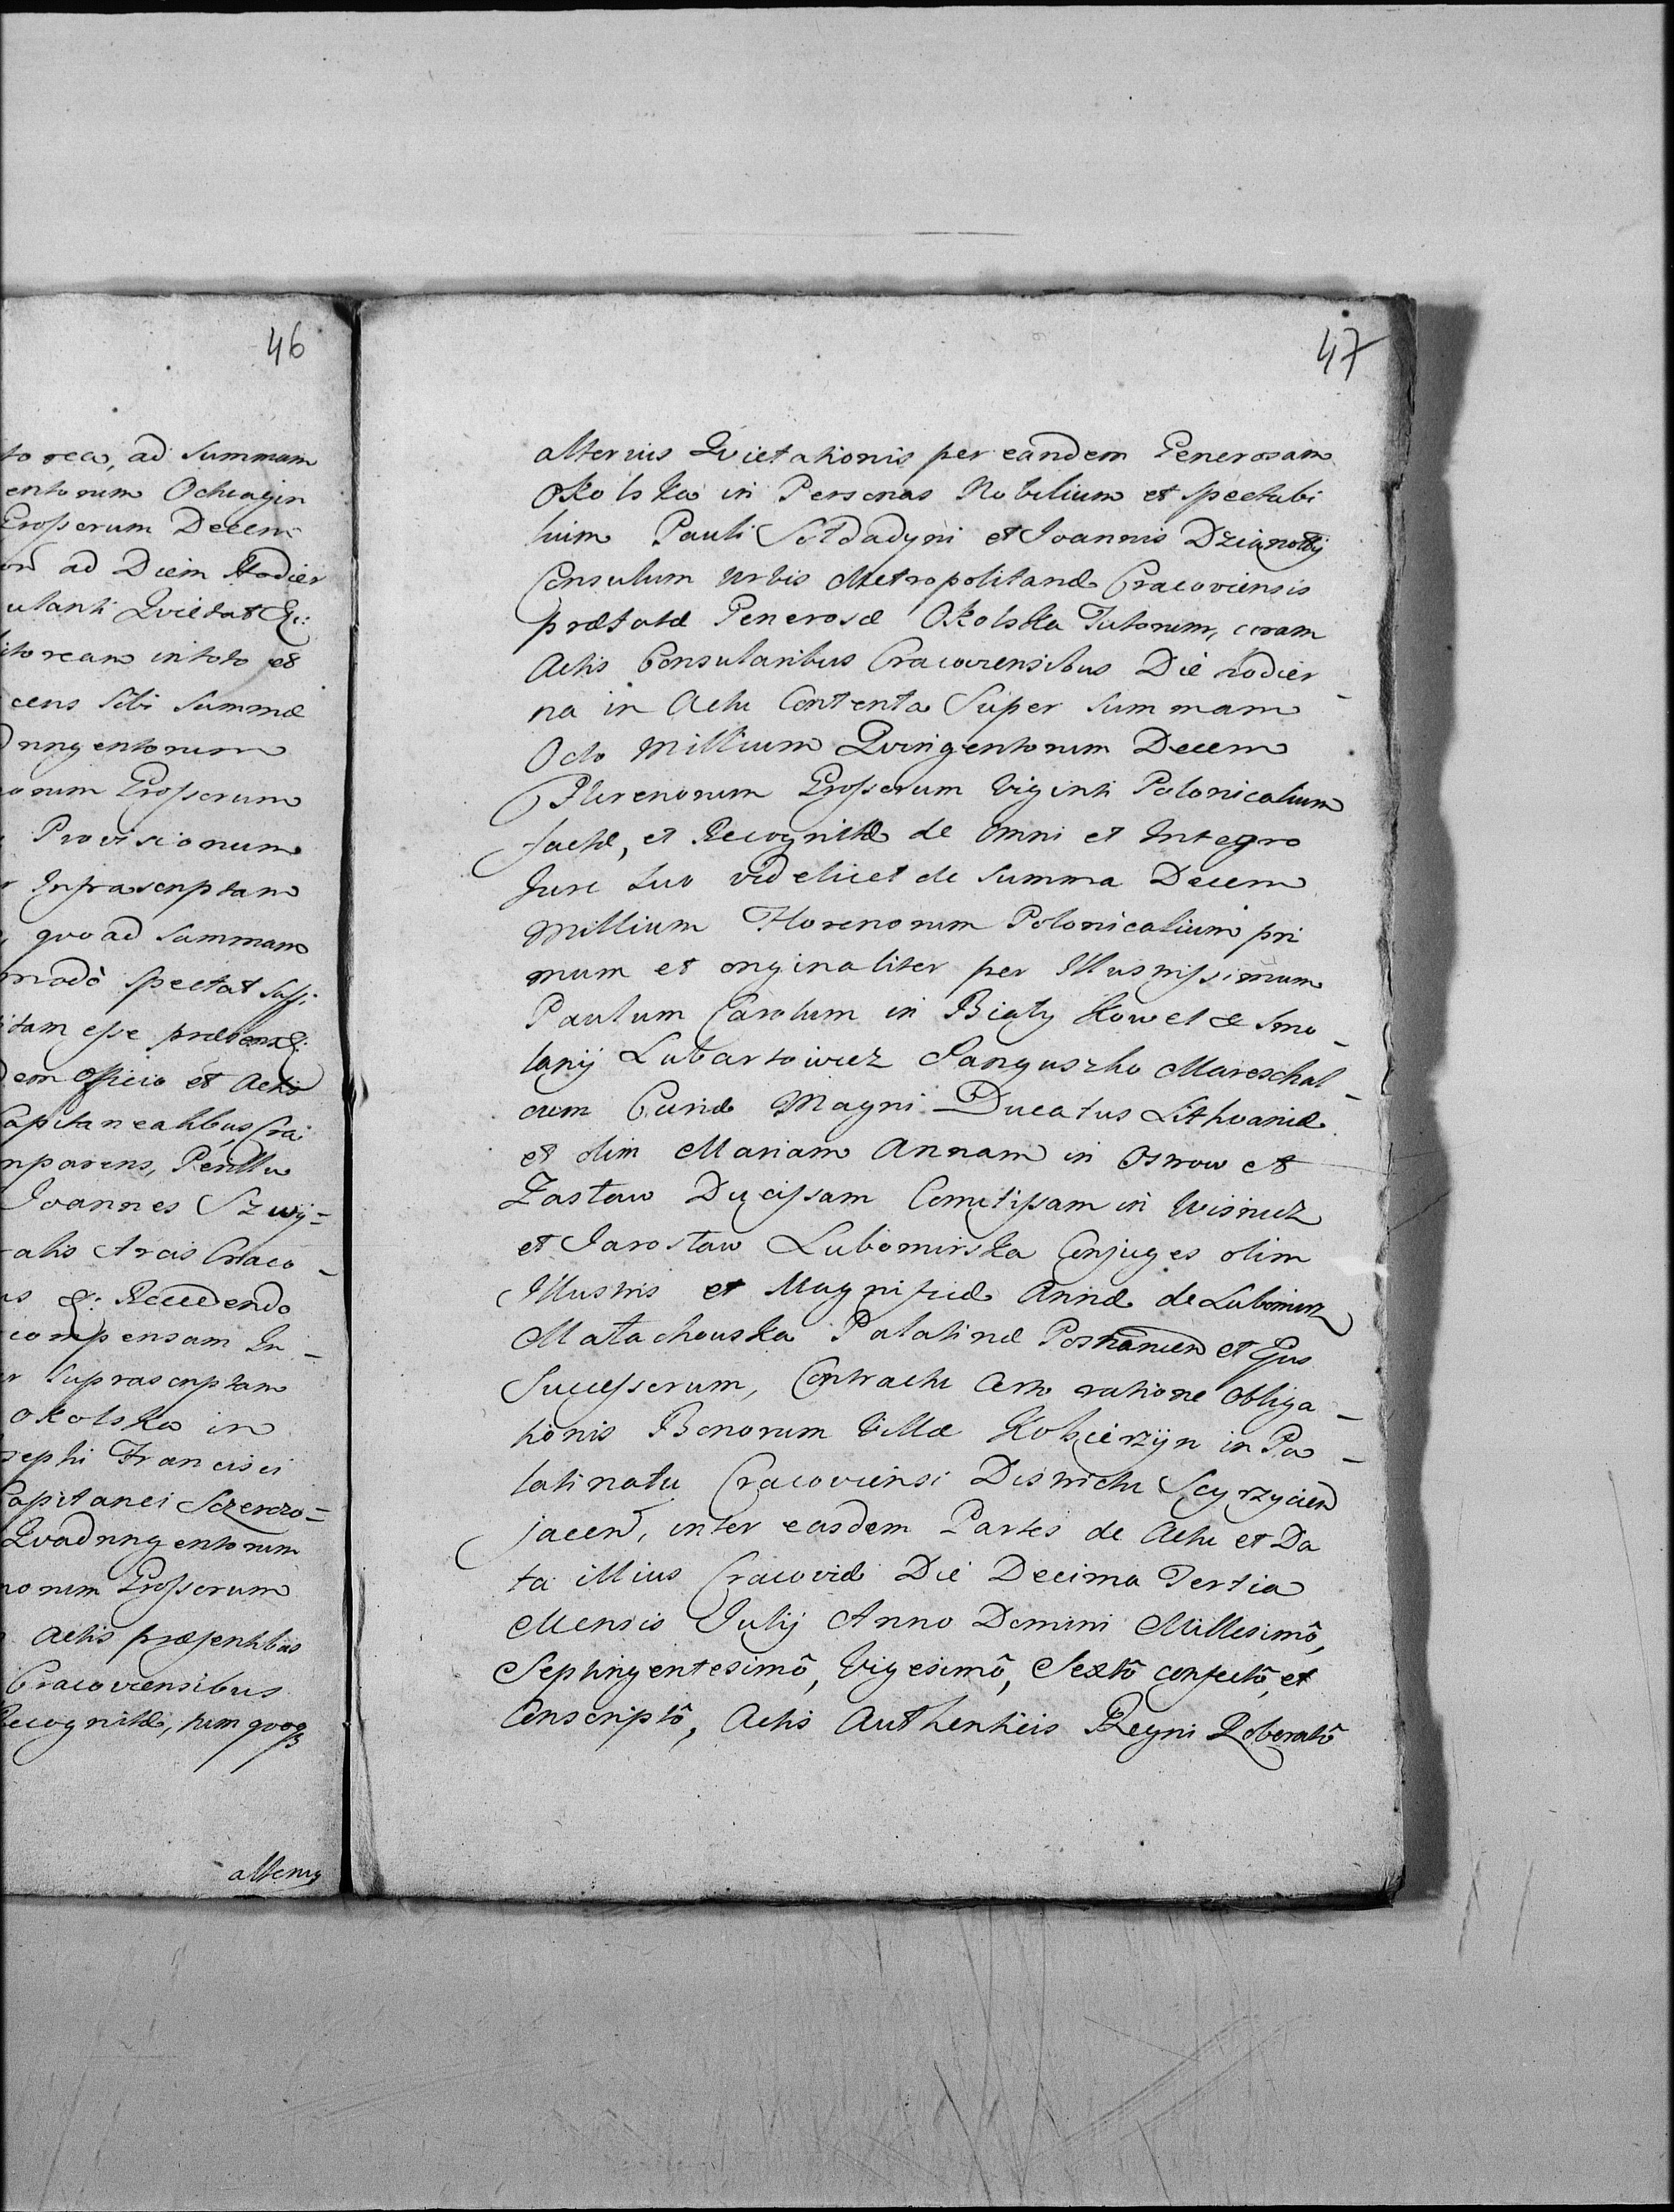 46
to rea, ad Summam
entorum Octuagin
Grosserum Decem
on ad Diem Hodier
ulanti Qvietat &c:
itoream in toto et
cens Sibi Summæ
dringentorum
orum Grosserum
Provisionum
r Infrascriptam
qvo ad Summam
modò spectat Suffi
itam esse præbens &:
dem Officio et Actis
Capitanealibus Cra:
mparens, Perillu
Joannes Szwij=
ralis Arcis Craco-
us &: Recedendo
compensam In-
r Suprascriptam
okolska in
sephi Francisci
Capitanei Sczerczo=
Qvadringentorum
norum Grosserum
Actis præsentibus
Cracoviensibus
Recognitæ, tum qvoqꝫ
alterius
47
alterius Qvietationis per eandem Generosam
Okolska in Personas Nobilium et Spectabi
lium Pauli Soldadyni et Joannis Dzianottÿ
Consulum Urbis Metropolitanæ Cracoviensis
præfatæ Generosæ Okolska Tutorum, coram
Actis Consularibus Cracoviensibus Die hodier-
na in Actu Contenta Super Summam
Octo Millium Qvingentorum Decem
Florenorum Grosserum Viginti Polonicalium
factæ, et Recognitæ de Omni et Integro
Jure Suo videlicet de Summa Decem
Millium Florenorum Polonicalium pri
mum et originaliter per Illustrissimum
Paulum Carolum in Biały Kowel & Smo-
lanÿ Lubartowicz Sanguszko Mareschal-
cum Curiæ Magni Ducatus Lithvaniæ
et olim Mariam Annam in Ostrow et
Zasław Ducissam Comitissam in Wisnicz
et Jarosław Lubomirska Conjuges olim
Illustris et Magnificæ Annæ de Lubomirz
Małachowska Palatinæ Posnanien et Ejus
Successerum, Contractu Certo ratione Obliga-
tionis Bonorum Villæ Koscierzÿn in Pa-
latinatu Cracoviensi Districtu Scyrzycien
jacen, inter easdem Partes de Actu et Da
ta illius Cracoviæ Die Decima Tertia
Mensis Julÿ Anno Domini Millesimô,
Septingentesimô, Vigesimô, Sextô confectô, et
Conscriptô, Actis Authenticis Regni Roboratô